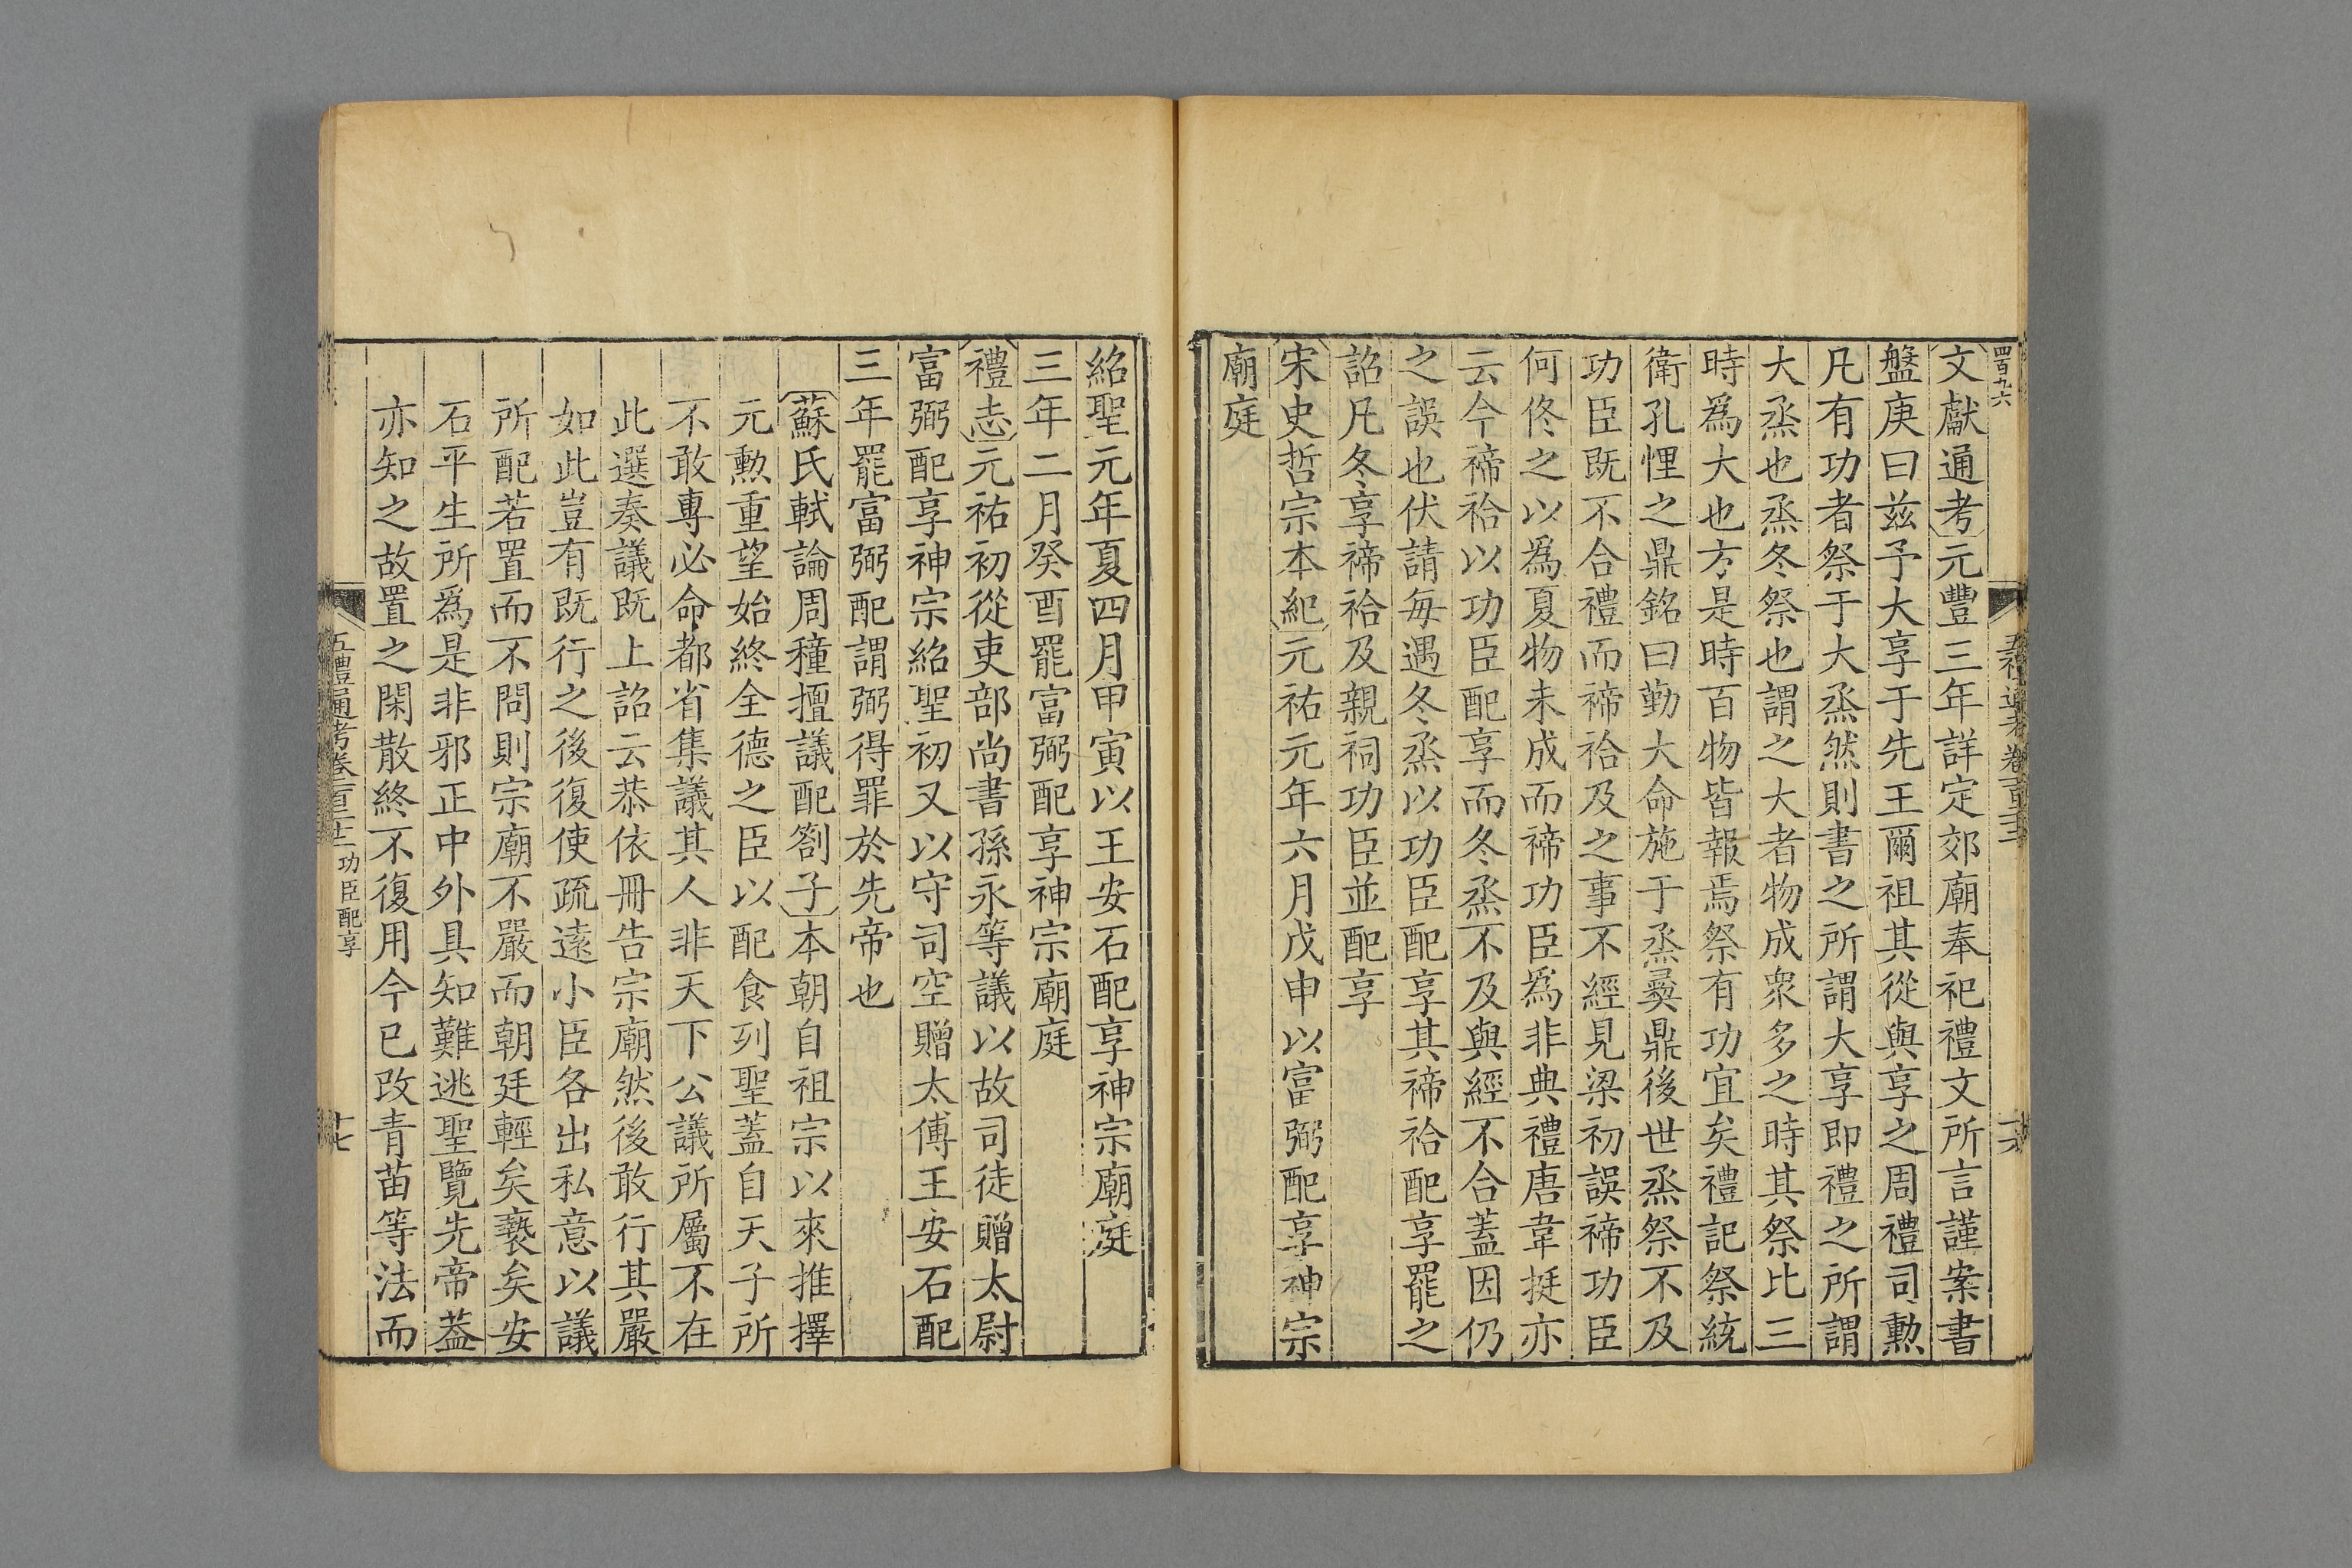 四百九六
文獻通考元豐三年詳定郊廟奉祀禮文所言謹案書
盤庚曰茲予大享于先王爾祖其從與享之周禮司勲
凡有功者祭于大烝然則書之所謂大享即禮之所謂
大烝也烝冬祭也謂之大者物成衆多之時其祭比三
時爲大也方是時百物皆報焉祭有功宜矣禮記祭統
衛孔悝之鼎銘曰勤大命施于烝彝鼎後世烝祭不及
功臣既不合禮而禘祫及之事不經見梁初誤禘功臣
何佟之以爲夏物未成而禘功臣爲非典禮唐韋挺亦
云今禘祫以功臣配享而冬烝不及與經不合蓋因仍
之誤也伏請每遇冬烝以功臣配享其禘祫配享罷之
詔凡冬享禘祫及親祠功臣並配享
宋史哲宗本紀元祐元年六月戊申以富弼配享神宗
廟庭
紹聖元年夏四月甲寅以王安石配享神宗廟庭
三年二月癸酉罷富弼配享神宗廟庭
禮志元祐初從吏部尚書孫永等議以故司徒贈太尉
富弼配享神宗紹聖初又以守司空贈太傅王安石配
三年罷富弼配謂弼得罪於先帝也
蘇氏軾論周種擅議配劄子本朝自祖宗以來推擇
元勲重望始終全德之臣以配食列聖蓋自天子所
不敢專必命都省集議其人非天下公議所屬不在
此選奏議既上詔云恭依冊告宗廟然後敢行其嚴
如此豈有既行之後復使疏遠小臣各出私意以議
所配若置而不問則宗廟不嚴而朝廷輕矣褻矣安
石平生所爲是非邪正中外具知難逃聖覽先帝蓋
亦知之故置之閑散終不復用今已改青苗等法而
五禮通考卷一百二十二功臣配享
十七